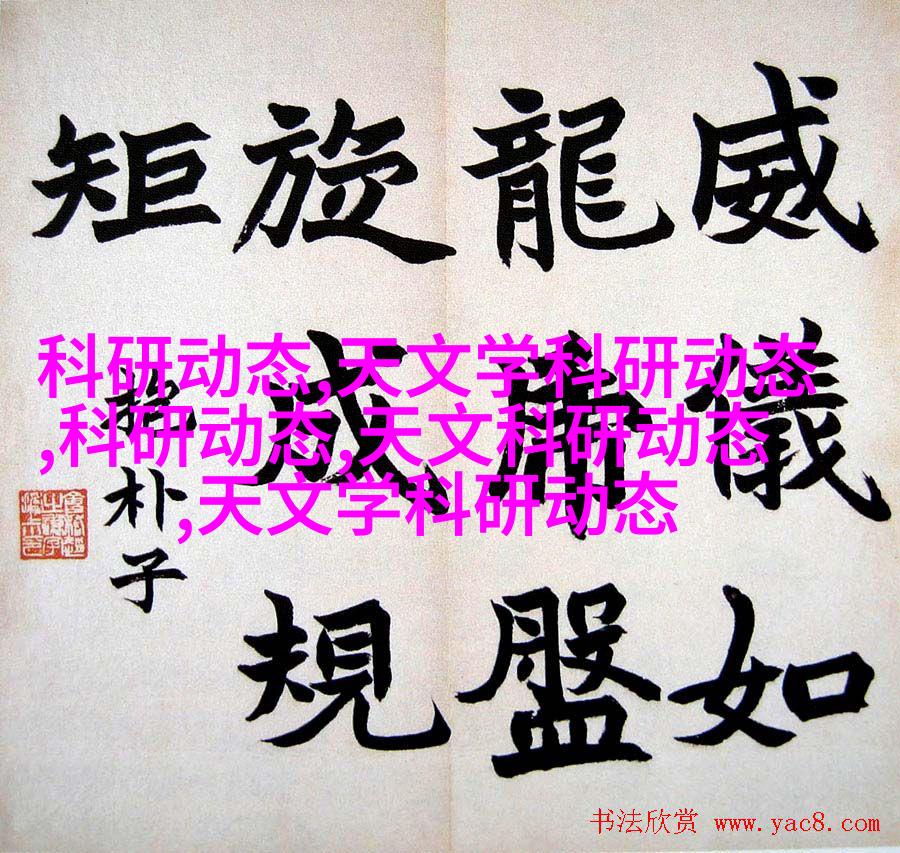 威儀如
龍盤
旋成規
矩
抱朴子
科研动态,天文学科研动态
,科研动态,天文科研动态
,天文学科研动态
书法欣赏 www.yac8.com